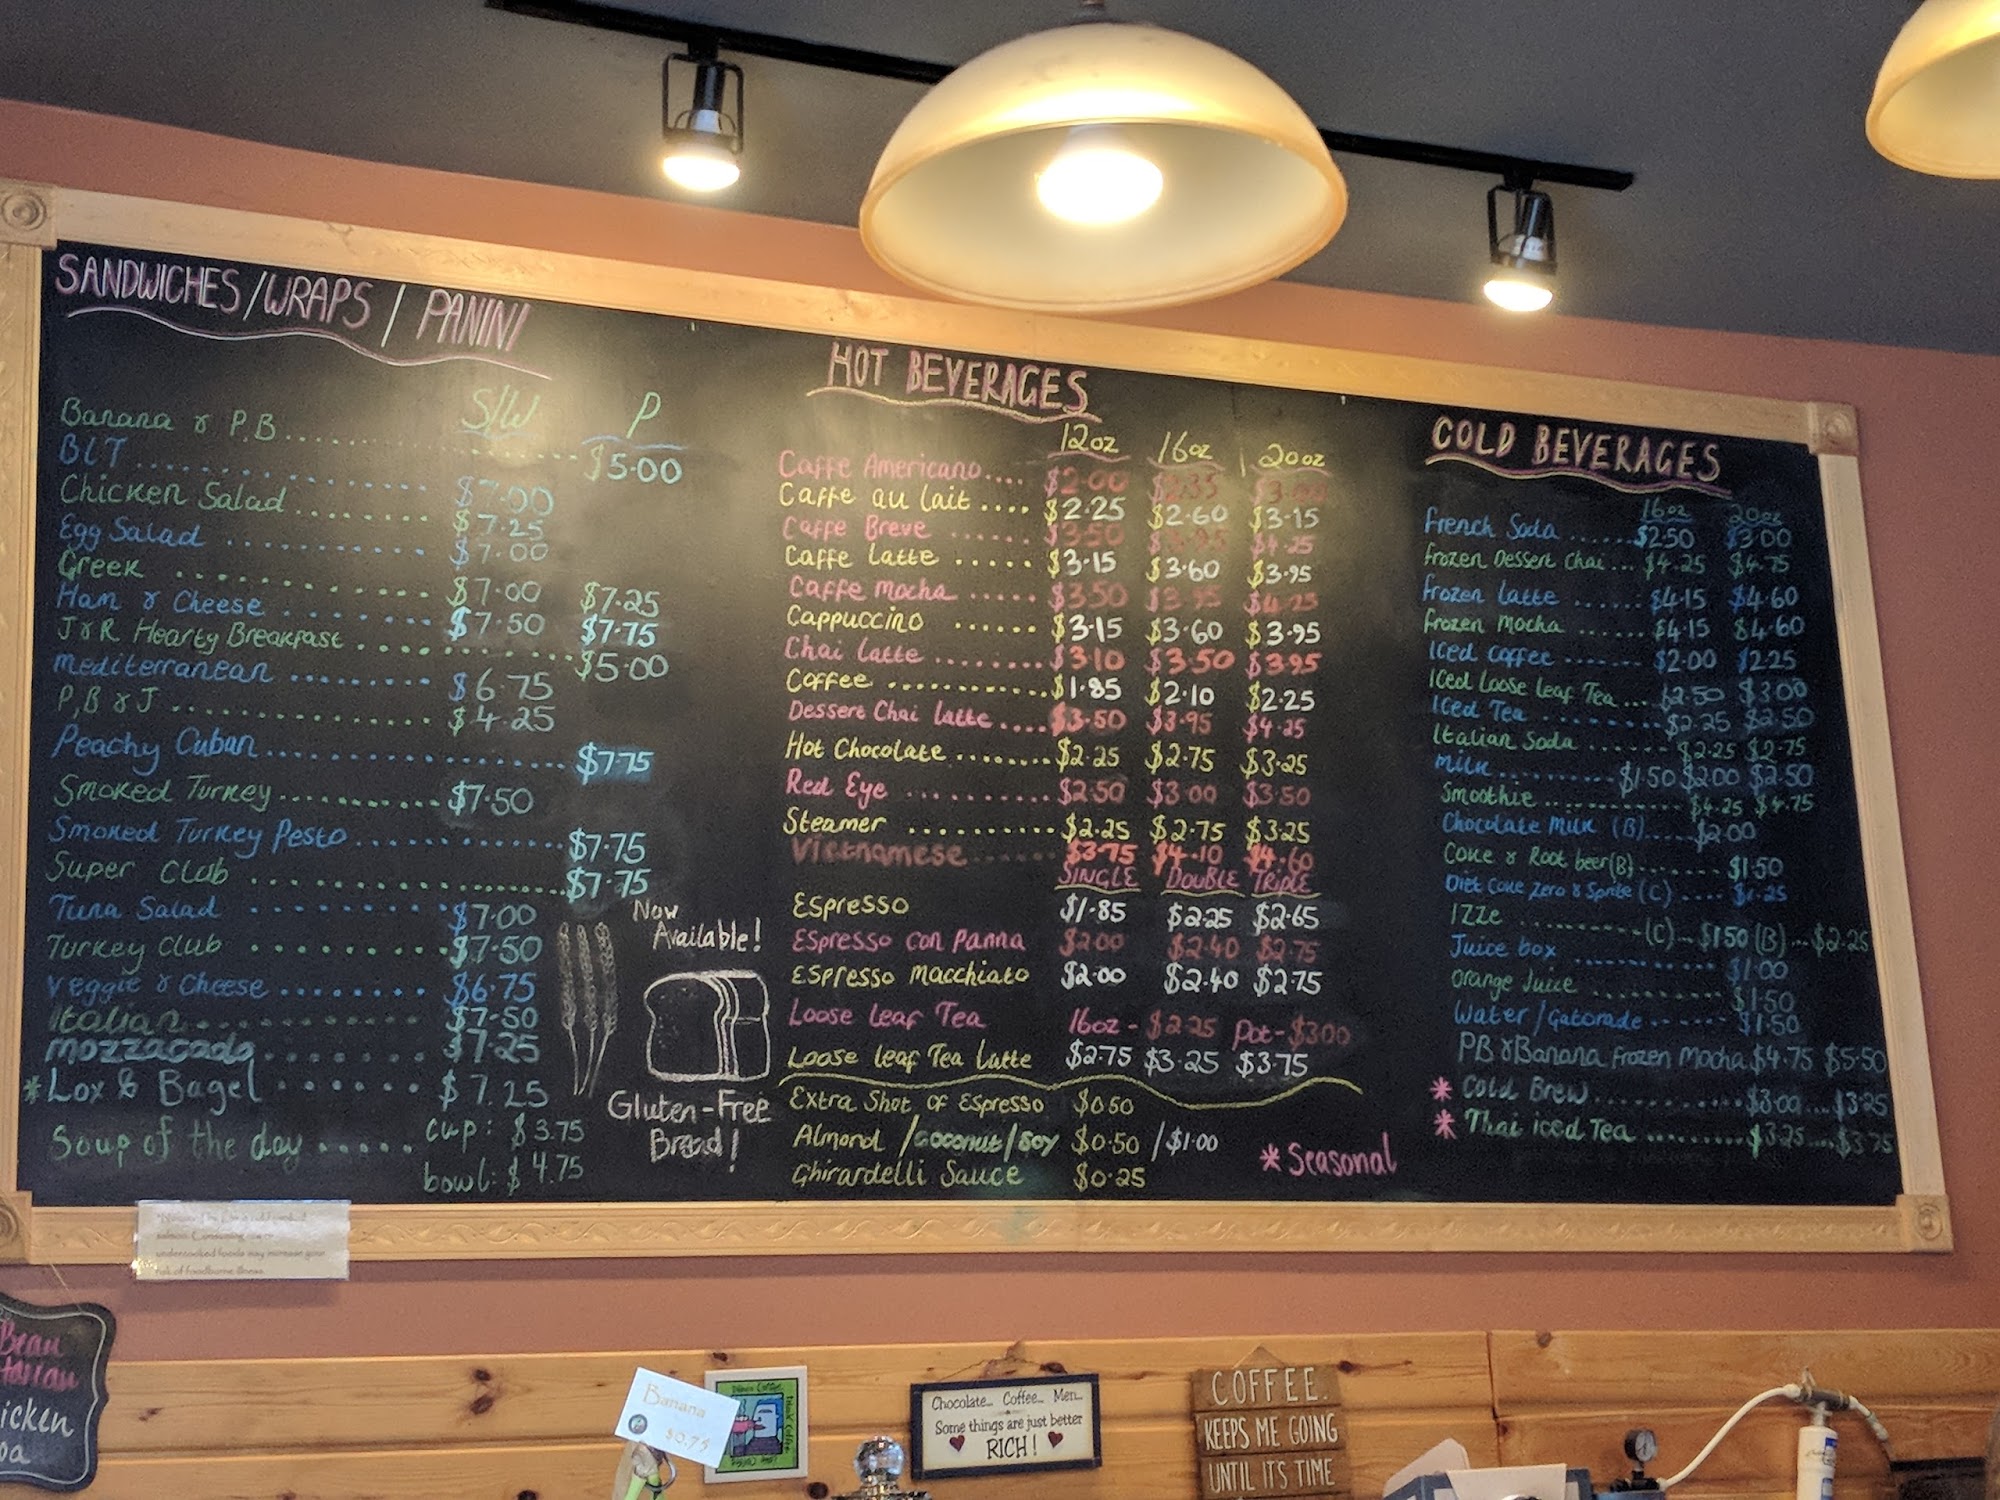 SANDWICHES/WRAPS / PANINI
S/W P
Banana & P.B. $5.00
BLT $7.00
Chicken Salad $7.25
Egg Salad $7.00
Greek $7.00 $7.25
Ham & Cheese $7.50 $7.75
J&R Hearty Breakfast $5.00
Mediterranean $6.75
P,B & J $4.25
Peachy Cuban $7.75
Smoked Turkey $7.50
Smoked Turkey Pesto $7.75
Super Club $7.75
Tuna Salad $7.00
Turkey Club $7.50
Veggie & Cheese $6.75
Italian $7.50
mozzacado $7.25
*Lox & Bagel $7.25
Soup of the day cup: $3.75
bowl: $4.75
Now
Available!
Gluten-Free
Bread!
HOT BEVERAGES
12oz 16oz 20oz
Caffe Americano.... $2.00 $2.35 $3.00
Caffe au lait .... $2.25 $2.60 $3.15
Caffe Breve $3.50 $3.95 $4.25
Caffe Latte ..... $3.15 $3.60 $3.95
Caffe Mocha ..... $3.50 $3.95 $4.25
Cappuccino ...... $3.15 $3.60 $3.95
Chai Latte ........ $3.10 $3.50 $3.95
Coffee ........... $1.85 $2.10 $2.25
Dessert Chai Latte.... $3.50 $3.95 $4.25
Hot Chocolate ........ $2.25 $2.75 $3.25
Red Eye .......... $2.50 $3.00 $3.50
Steamer .......... $2.25 $2.75 $3.25
Vietnamese $3.75 $4.10 $4.60
SINGLE DOUBLE TRIPLE
Espresso $1.85 $2.25 $2.65
Espresso con Panna $2.00 $2.40 $2.75
Espresso Macchiato $2.00 $2.40 $2.75
Loose Leaf Tea 16oz - $2.25 Pot - $3.00
Loose Leaf Tea Latte $2.75 $3.25 $3.75
Extra Shot of Espresso $0.60
Almond /Coconut/Soy $0.50 / $1.00
Ghirardelli Sauce $0.25
* Seasonal
COLD BEVERAGES
16oz 20oz
French Soda ...... $2.50 $3.00
Frozen Dessert Chai... $4.25 $4.75
Frozen Latte ...... $4.15 $4.60
Frozen Mocha ...... $4.15 $4.60
Iced Coffee ....... $2.00 $2.25
Iced Loose Leaf Tea... $2.50 $3.00
Iced Tea $2.25 $2.50
Italian Soda ....... $2.25 $2.75
Milk .......... $1.50 $2.00 $2.50
Smoothie $4.25 $4.75
Chocolate Milk (B)..... $2.00
Coke & Root beer(B)....... $1.50
Diet Coke Zero & Sprite (C) $1.25
IZZE (C) - $1.50 (B) ... $2.25
Juice box $1.00
Orange Juice $1.50
Water/Gatorade $1.50
PB & Banana Frozen Mocha $4.75 $5.50
* Cold Brew $3.00....$3.25
* Thai iced Tea $3.25....$3.75
salmon. Consuming raw or
undercooked foods may increase your
risk of foodborne illness.
Bean
Italian
icken
Banana
$0.75
Chocolate... Coffee... Men...
Some things are just better
RICH!
COFFEE.
KEEPS ME GOING
UNTIL IT'S TIME